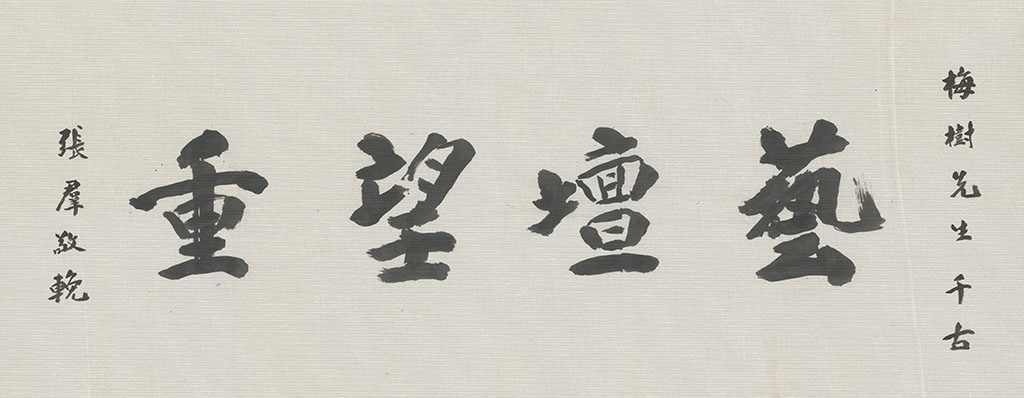 梅樹先生千古
藝壇望重
張羣敬輓